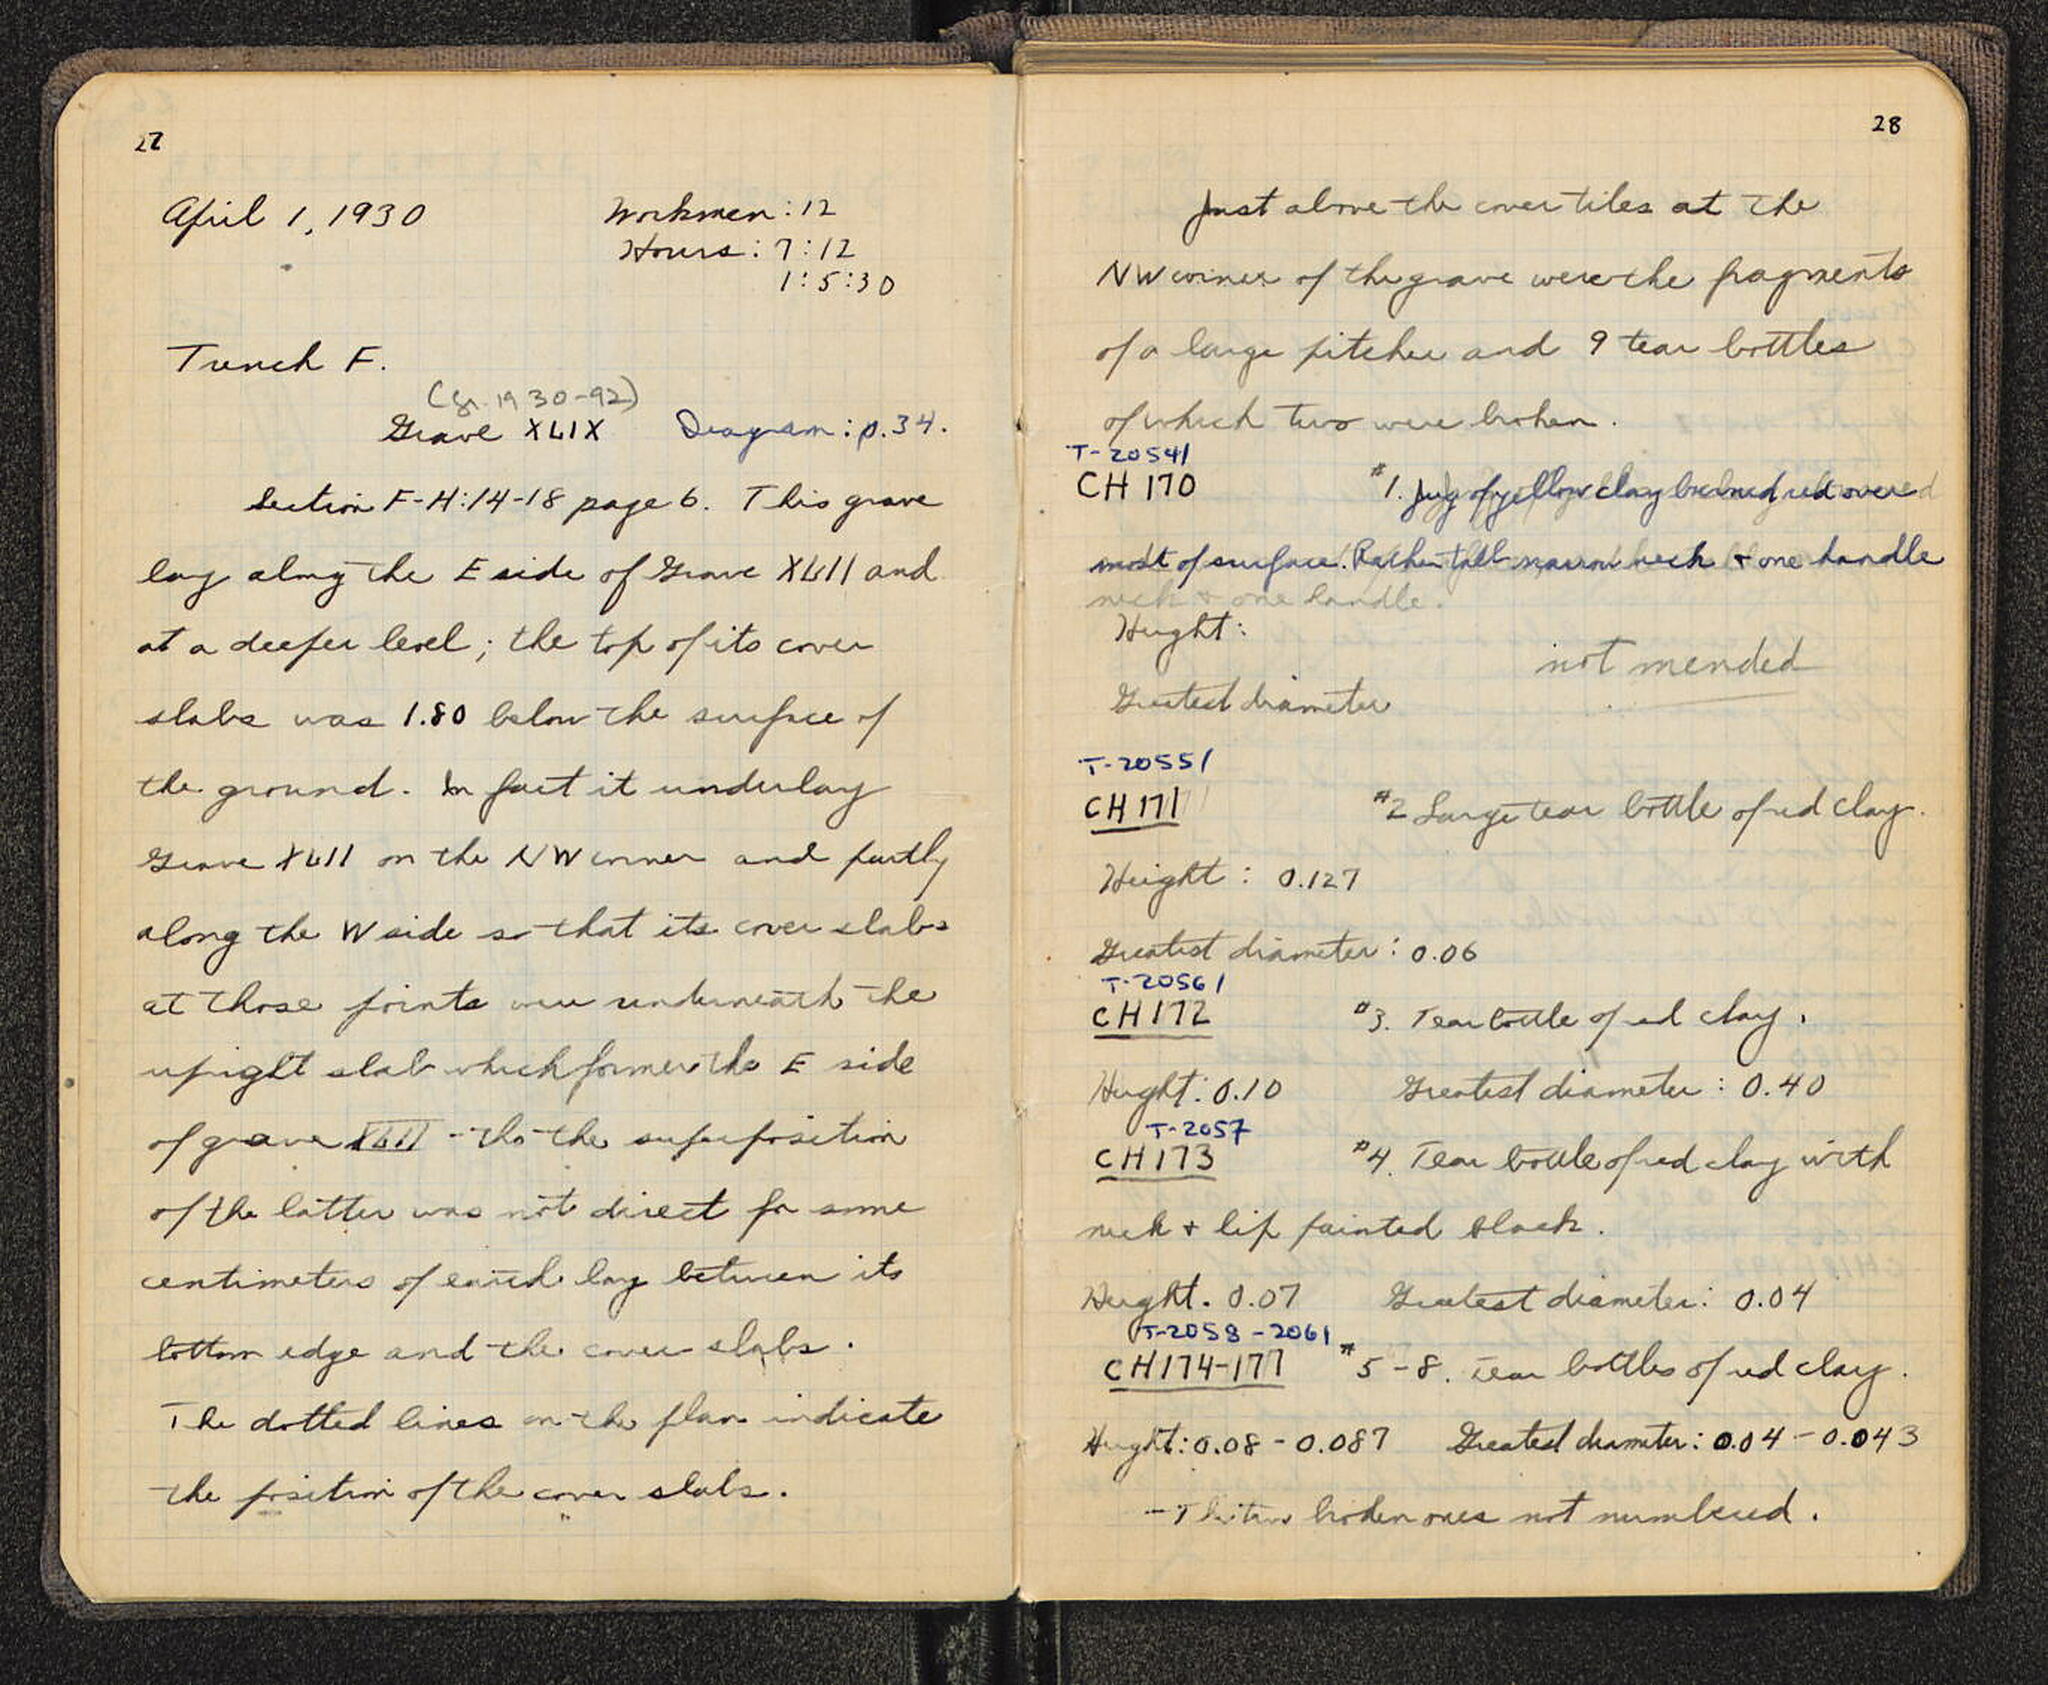 27
April 1, 1930 Workmen: 12
Hours: 7:12
1:5:30
Trench F.
(Gr. 1930-92)
Grave XLIX Diagram: p.34.
Section F-H:14-18 page 6. This grave
lay along the E side of Grave XLII and
at a deeper level; the top of its cover
slabs was 1.80 below the surface of
the ground. In fact it underlay
Grave XLII on the NW corner and partly
along the W side so that its cover slabs
at those points were underneath the
upright slab which former the E side
of grave XLII - tho the superposition
of the latter was not direct for some
centimeters of earth lay between its
bottom edge and the cover slabs.
The dotted lines on the plan indicate
the position of the cover slabs.
28
Just above the cover tiles at the
NW corner of the grave were the fragments
of a large pitcher and 9 tear bottles
of which two were broken.
T-2054/
CH 170 #1. Jug of yellow clay burned red over
most of surface. Rather tall narrow neck + one handle
neck + one handle.
Height:
not mended
Greatest diameter
T-2055/
CH 171 #2 Large tear bottle of red clay.
Height: 0.127
Greatest diameter: 0.06
T-2056/
CH 172 #3. Tear bottle of red clay.
Height: 0.10 Greatest diameter: 0.40
T-2057
CH 173 #4. Tear bottle of red clay with
neck + lip painted black.
Height. 0.07 Greatest diameter: 0.04
T-2058-2061
CH 174-177 #5-8. Tear bottles of red clay.
Height: 0.08-0.087 Greatest diameter: 0.04-0.043
- The two broken ones not numbered.